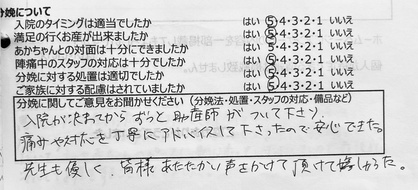 分娩について
入院のタイミングは適当でしたか はい ⑤・4・3・2・1 いいえ
満足の行くお産が出来ましたか はい ⑤・4・3・2・1 いいえ
あかちゃんとの対面は十分にできましたか はい ⑤・4・3・2・1 いいえ
陣痛中のスタッフの対応は十分でしたか はい ⑤・4・3・2・1 いいえ
分娩に対する処置は適切でしたか はい ⑤・4・3・2・1 いいえ
ご家族に対する配慮はされていましたか はい ⑤・4・3・2・1 いいえ
分娩に関してご意見をお聞かせください（分娩法・処置・スタッフの対応・備品など）
入院が決まってから ずっと 助産師が ついて下さり、
痛みや対応を丁寧にアドバイスして下さったので安心できた。
先生も優しく、皆様 あたたかい声をかけて頂けて嬉しかった。